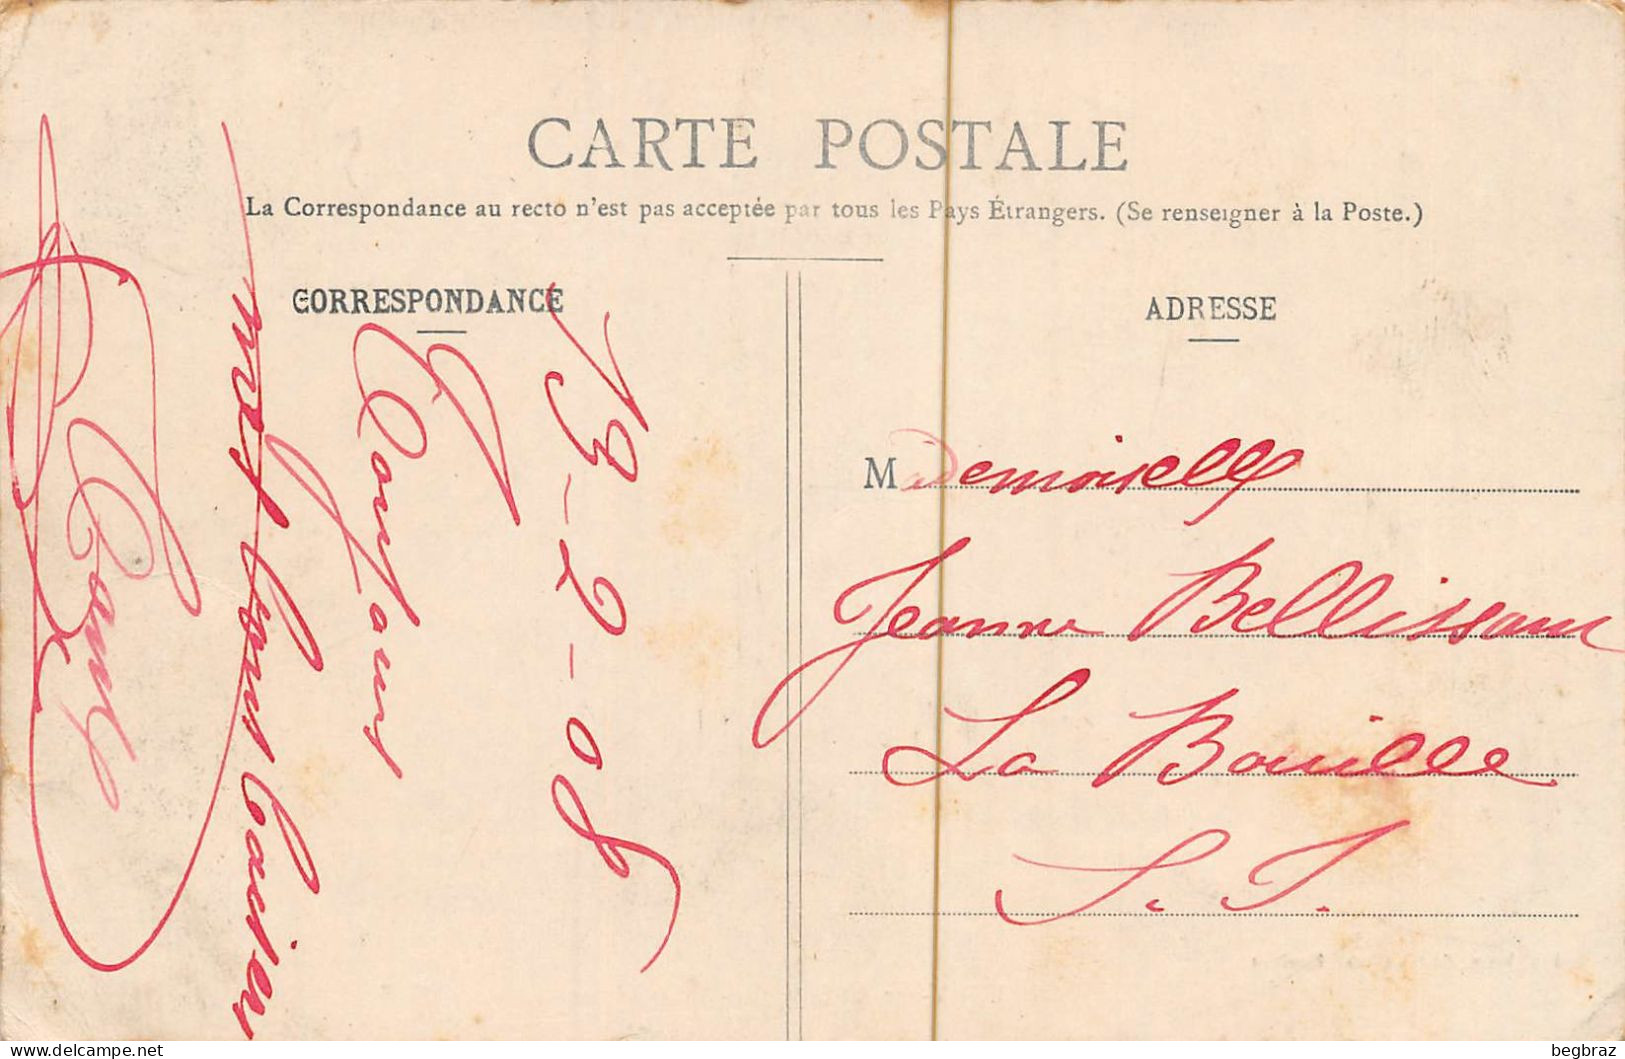 CARTE POSTALE
La Correspondance au recto n'est pas acceptée par tous les Pays Étrangers. (Se renseigner à la Poste.)
CORRESPONDANCE
13-2-08
Toujours
mes bons baisers
ADRESSE
Mademoiselle
Jeanne Bellissam
La Bouille
S. I.
begbraz